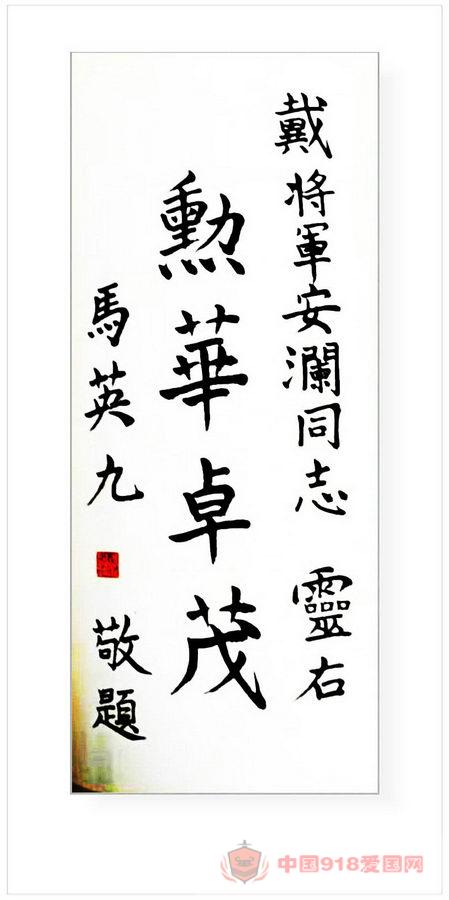 戴將軍安瀾同志 靈右
勳華卓茂
馬英九 敬題
中国918爱国网